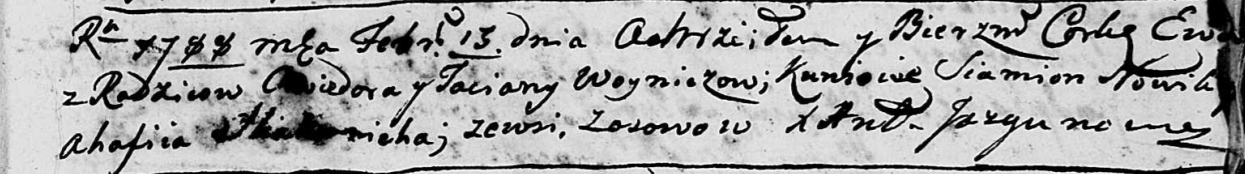 Rku 1788 mca Febr. 13. dnia Ochrzciłem y Bierzm. Corkę Ewa
z Rodzicow Awiedora y Taciany Woyniczow; Kumowie Siamion Nowik y
Ahafiia nicha; zewsi, Zosowow x Ant. Jazgunowicz